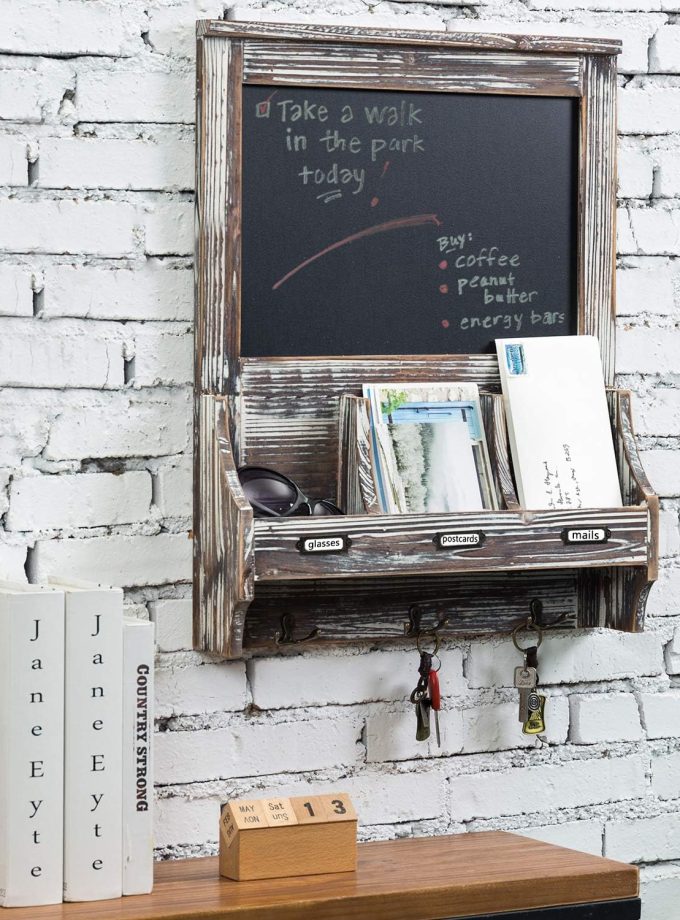 Take a walk
in the park
today!
Buy:
coffee
peanut
butter
energy bars
glasses
postcards
mails
Jane Eyte
Jane Eyte
COUNTRY STRONG
MAY
Sat
1 3